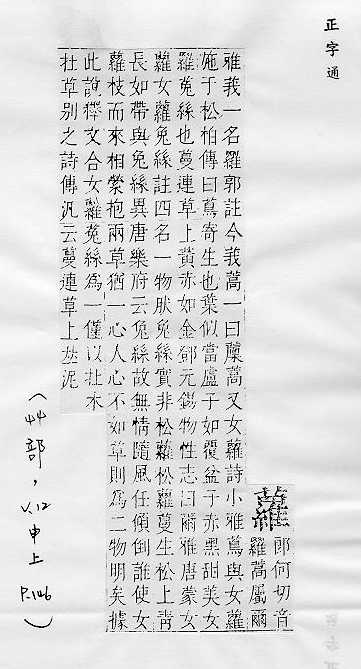 正字通
蘿
郎何切音
羅蒿屬爾
雅莪一名羅郭註今莪蒿一曰蘪蒿又女蘿詩小雅蔦與女蘿
施于松柏傳曰蔦寄生也葉似當盧子如覆盆子赤黑甜美女
蘿菟絲也蔓連草上黃赤如金鄧元錫物性志曰爾雅唐蒙女
蘿女蘿兔絲註四名一物肰兔絲實非松蘿松蘿蔓生松上靑
長如帶與兔絲異唐樂府云兔絲故無情隨風任傾倒誰使女
蘿枝而來相縈抱兩草猶一心人心不如草則為二物明矣據
此說釋文合女蘿菟絲為一僅以在木
在草別之詩傳汎云蔓連草上𠀤泥
(艸部, V.12 申上 P.146)